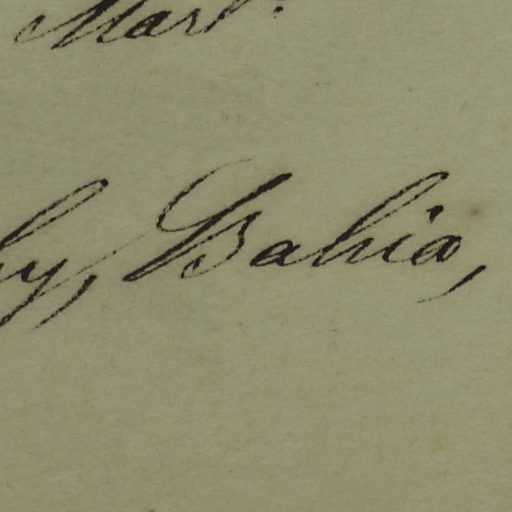 Mart.
hy, Bahia,